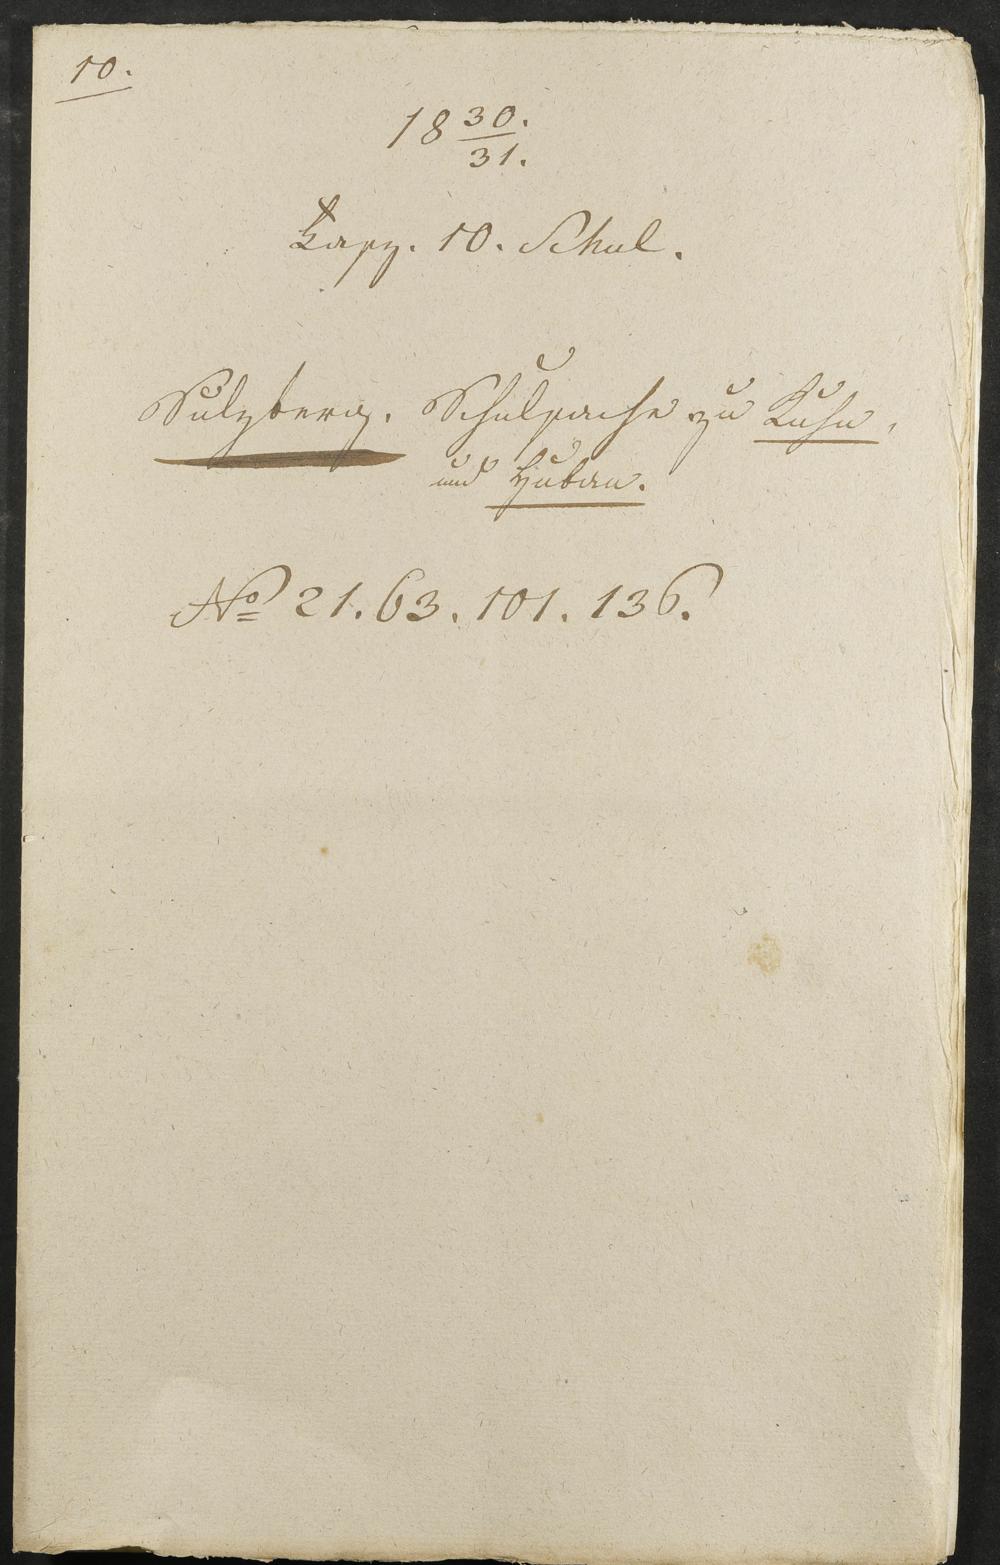 10.
18 30./31.
Fasz. 10. Schul.
Sulzberg. Schulsache zu
und
No 21. 63. 101. 136.